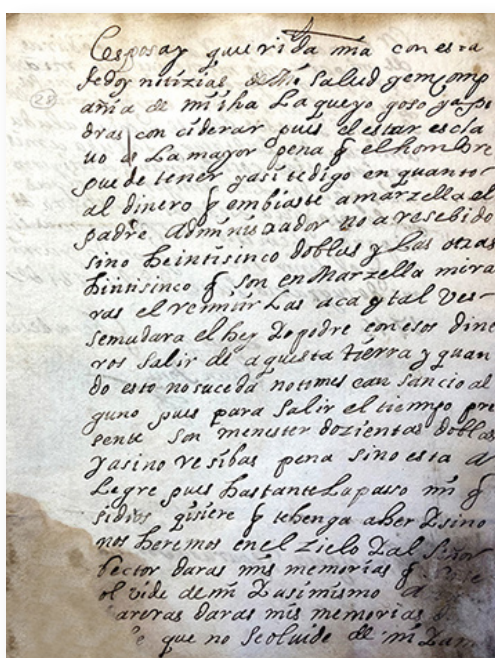 Cesposay querida mia con esta
tedoy notizias de Mi Salud yemcomp
añia de mi iha La queyo goso yapo
(28)
dras con ciderar puis el estar escla
uo es La mayor pena q el hombre
puede tener yasi tedigo en quanto
al dinero q embiaste amarzella el
padre Adminisrador no a resebido
sino beintisinco doblas y Las otras
bintisinco q son en Marzella mira
ras el remitir Las aca y tal ves
semudara el hey Zo podre con esos dine
ros Salir de aquesta tierra y quan
do esto no suceda no times can sancio al
guno pues para Salir el tiempo pre
sente Son menester dozientas doblas
yasino resibas pena sino esta A
Legre pues bastante La passo mi q
si dios quisiere q te benga a ber Zsino
nos beremos en el Zielo Zal Señor
bector daras mis memorias q
ol vide de mi Zasimismo a
areras daras mis memorias
que no Se olvide de mi